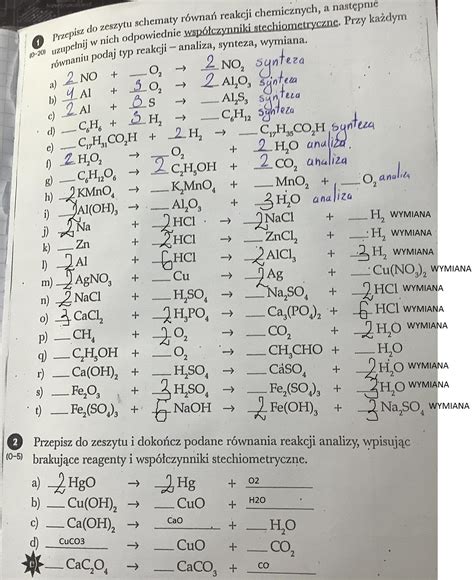 1 Przepisz do zeszytu schematy równań reakcji chemicznych, a następnie
(0–20) uzupełnij w nich odpowiednie współczynniki stechiometryczne. Przy każdym
równaniu podaj typ reakcji – analiza, synteza, wymiana.
a) 2 NO + __ O₂ → 2 NO₂ synteza
b) 4 Al + 3 O₂ → 2 Al₂O₃ synteza
c) 2 Al + 3 S → __ Al₂S₃ synteza
d) __ C₆H₆ + 3 H₂ → __ C₆H₁₂ synteza
e) __ C₁₇H₃₁CO₂H + 2 H₂ → __ C₁₇H₃₅CO₂H synteza
f) 2 H₂O₂ → __ O₂ + 2 H₂O analiza
g) __ C₆H₁₂O₆ → 2 C₂H₅OH + 2 CO₂ analiza
h) 2 KMnO₄ → __ K₂MnO₄ + __ MnO₂ + __ O₂ analiza
i) 2 Al(OH)₃ → __ Al₂O₃ + 3 H₂O analiza
j) 2 Na + 2 HCl → 2 NaCl + __ H₂ WYMIANA
k) __ Zn + 2 HCl → __ ZnCl₂ + __ H₂ WYMIANA
l) 2 Al + 6 HCl → 2 AlCl₃ + 3 H₂ WYMIANA
m) 2 AgNO₃ + __ Cu → 2 Ag + __ Cu(NO₃)₂ WYMIANA
n) 2 NaCl + __ H₂SO₄ → __ Na₂SO₄ + 2 HCl WYMIANA
o) 3 CaCl₂ + 2 H₃PO₄ → __ Ca₃(PO₄)₂ + 6 HCl WYMIANA
p) __ CH₄ + 2 O₂ → __ CO₂ + 2 H₂O WYMIANA
q) __ C₂H₅OH + __ O₂ → __ CH₃CHO + __ H₂O
r) __ Ca(OH)₂ + __ H₂SO₄ → __ CaSO₄ + 2 H₂O WYMIANA
s) __ Fe₂O₃ + 3 H₂SO₄ → __ Fe₂(SO₄)₃ + 3 H₂O WYMIANA
t) __ Fe₂(SO₄)₃ + 6 NaOH → 2 Fe(OH)₃ + 3 Na₂SO₄ WYMIANA
2 Przepisz do zeszytu i dokończ podane równania reakcji analizy, wpisując
(0–5) brakujące reagenty i współczynniki stechiometryczne.
a) 2 HgO → 2 Hg + O2
b) __ Cu(OH)₂ → __ CuO + H2O
c) __ Ca(OH)₂ → CaO + __ H₂O
d) CuCO3 → __ CuO + __ CO₂
__ CaC₂O₄ → __ CaCO₃ + CO